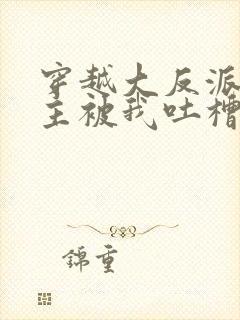 穿越大反派
主被我吐槽
錦重